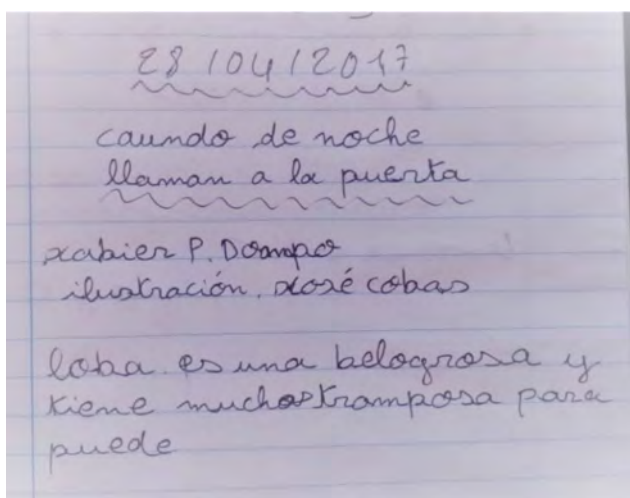 28/04/2017
caundo de noche
llaman a la puerta
xabier P. Doampo
ilustración. xosé cobas
loba es una belogrosa y
tiene muchastramposa para
puede